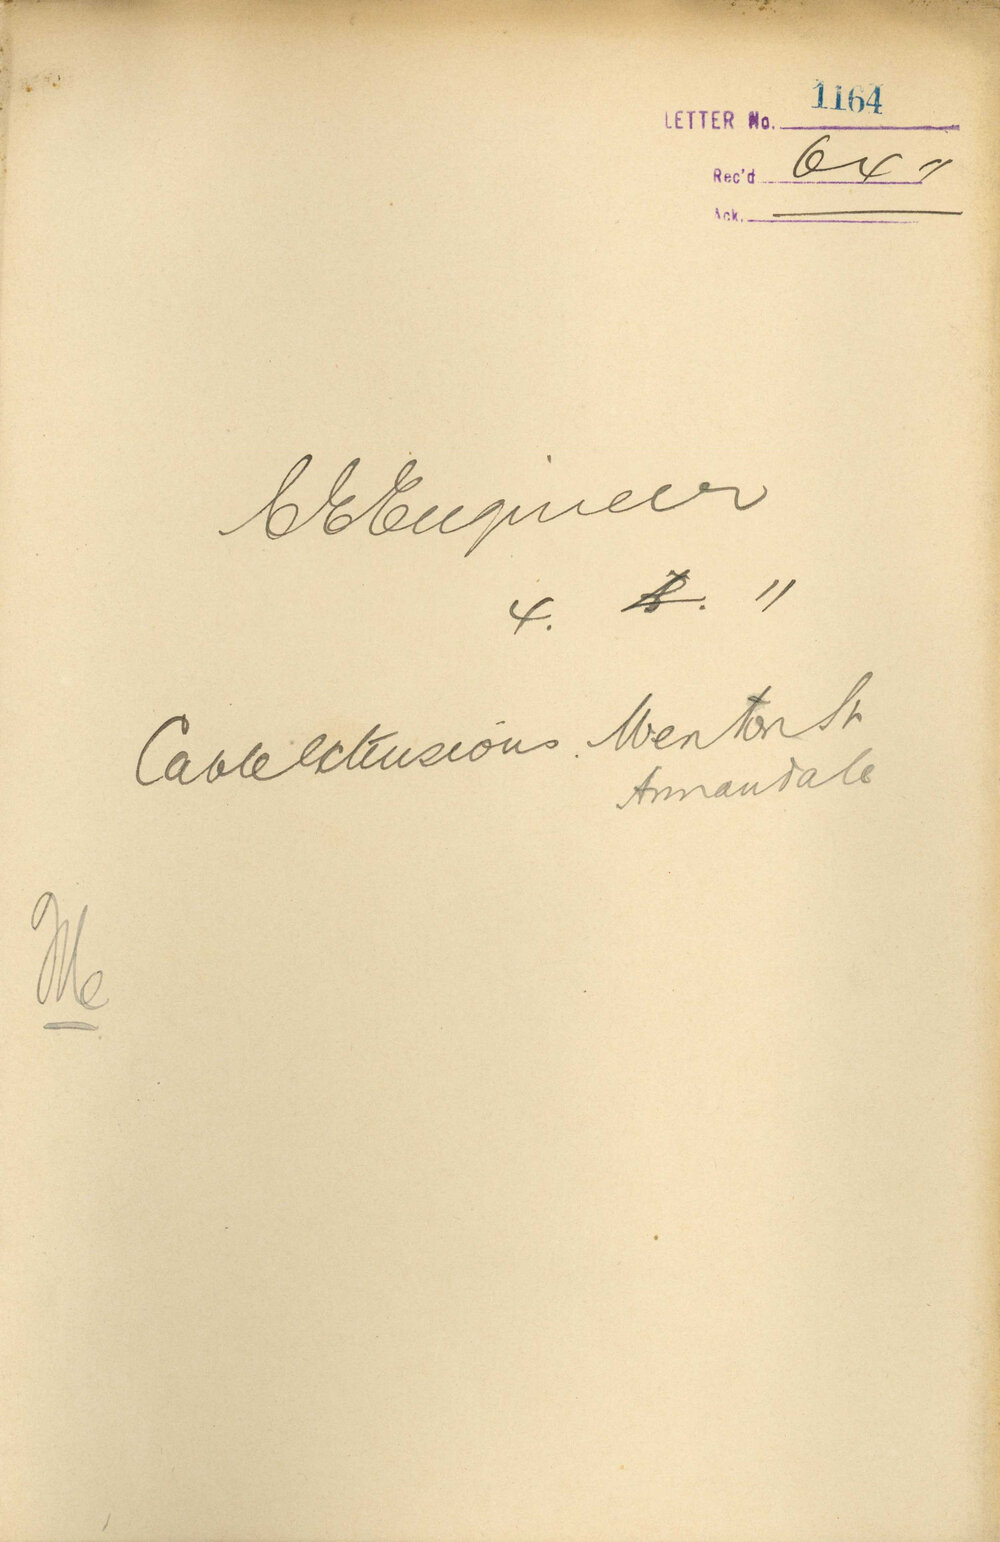 LETTER No. 1164
Rec'd 6 4 11
Ack.
C E Engineer
4. 11
Cable extensions. Wenton St
Annandale